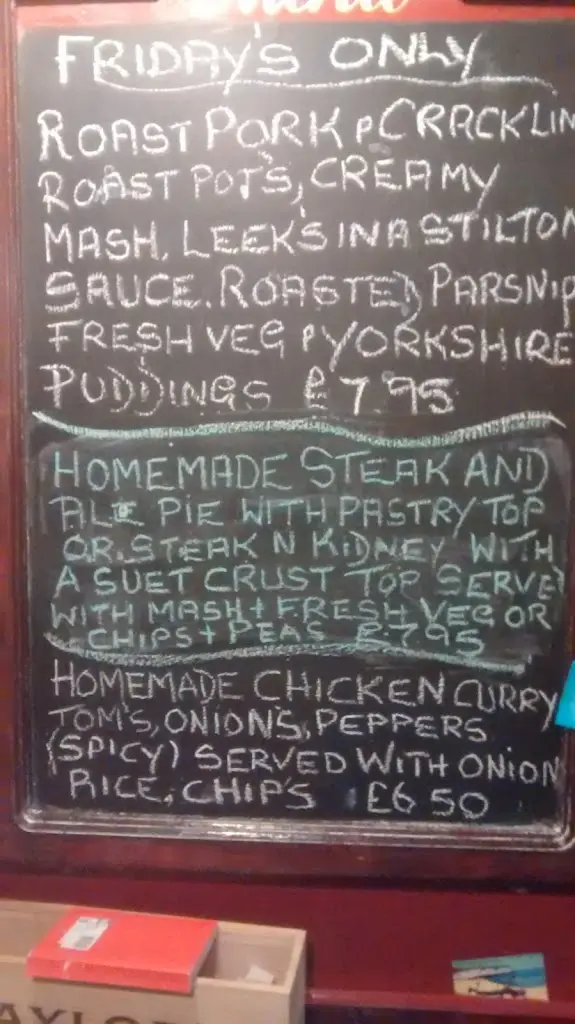 Menu
FRIDAY'S ONLY
ROAST PORK & CRACKLIN
ROAST POT'S, CREAMY
MASH, LEEK'S IN A STILTON
SAUCE. ROASTED PARSNIP
FRESH VEG & YORKSHIRE
PUDDINGS £7.95
HOMEMADE STEAK AND
ALE PIE WITH PASTRY TOP
OR. STEAK N KIDNEY WITH
A SUET CRUST TOP SERVE
WITH MASH + FRESH VEG OR
CHIPS + PEAS £7.95
HOMEMADE CHICKEN CURRY
TOM'S, ONION'S, PEPPERS
(SPICY) SERVED WITH ONION
RICE, CHIP'S £6 50
AYLO